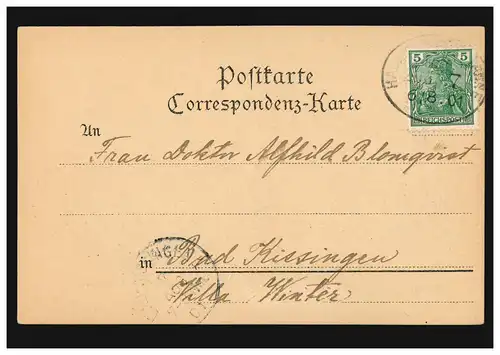 5 5
REICHSPOST
6 8 01
Postkarte
Correspondenz-Karte
An
Frau Doktor Alfhild Blomqvist
in Bad Kissingen
Villa Winter